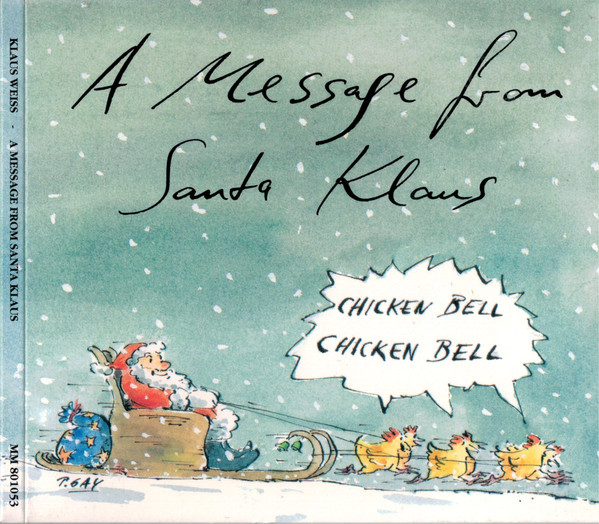 KLAUS WEISS - A MESSAGE FROM SANTA KLAUS
MM 801053
A Message from
Santa Klaus
CHICKEN BELL
CHICKEN BELL
P. GAY